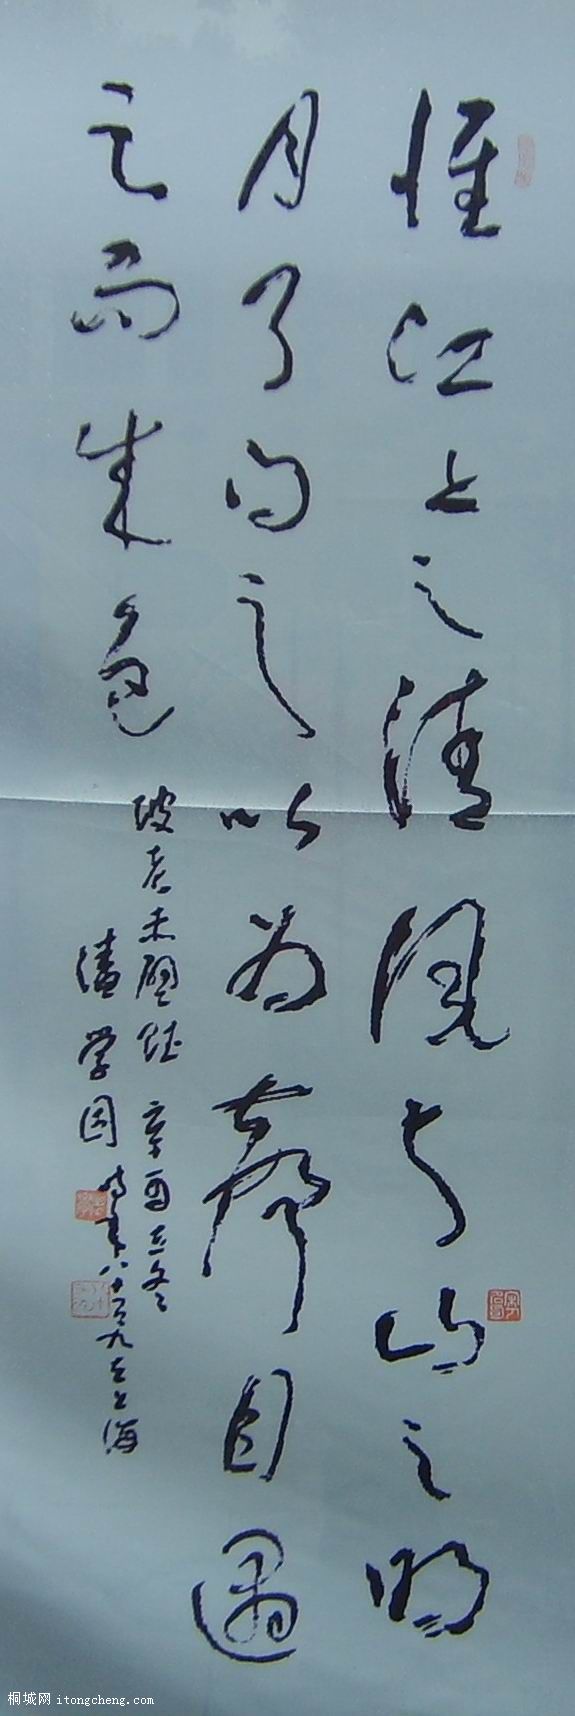 惟江上之清風与山之明
月耳得之以为聲目遇
之而成色
坡老赤壁賦 辛酉立冬
潘学固 时年八十有九在上海
桐城网 itongcheng.com